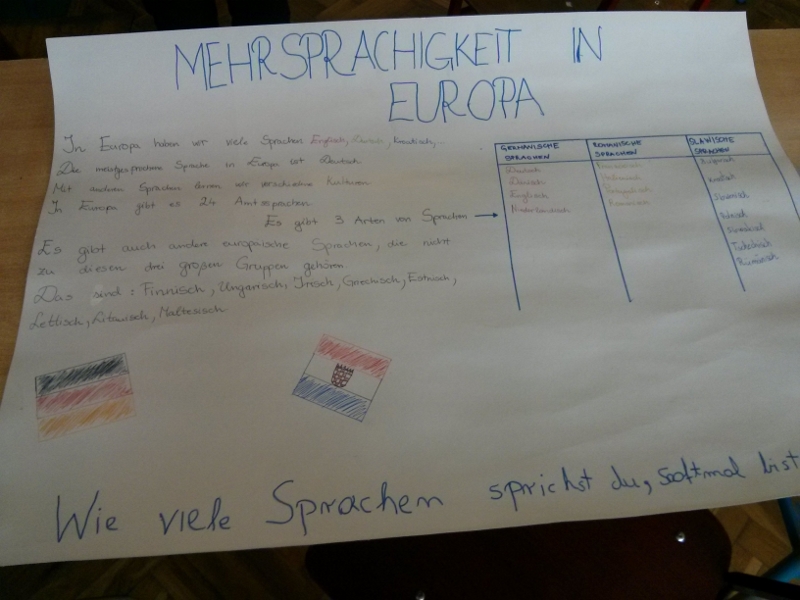 MEHRSPRACHIGKEIT IN
EUROPA
In Europa haben wir viele Sprachen Englisch, Deutsch, Kroatisch,..
Die meistgesprochene Sprache in Europa ist Deutsch.
Mit anderen Sprachen lernen wir verschiedene Kulturen.
In Europa gibt es 24 Amtssprachen.
Es gibt 3 Arten von Sprachen
Es gibt auch andere europäische Sprachen, die nicht
zu diesen drei großen Gruppen gehören.
Das sind: Finnisch, Ungarisch, Irisch, Griechisch, Estnisch,
Lettisch, Litauisch, Maltesisch
GERMANISCHE
SPRACHEN
Deutsch
Dänisch
Englisch
Niederländisch
ROMANISCHE
SPRACHEN
Italienisch
Portugiesisch
Rumänisch
SLAWISCHE
SPRACHEN
Bulgarisch
Kroatisch
Slowenisch
Polnisch
Slowakisch
Tschechisch
Wie viele Sprachen sprichst du, sooftmal bist